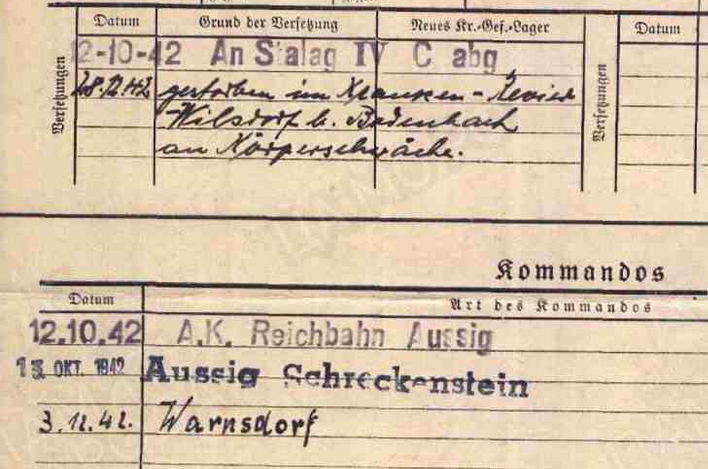 Datum Grund der Versetzung Neues Kr.-Gef.-Lager Datum
Versetzungen
2-10-42 An Stalag IV C abg
28.12.42 gestorben im Kranken-Revier
Wilsdorf b. Bodenbach
an Körperschwäche.
Versetzungen
Kommandos
Datum Art des Kommandos
12.10.42 A.K. Reichbahn Aussig
OKT. 1942 Aussig Schreckenstein
Warnsdorf